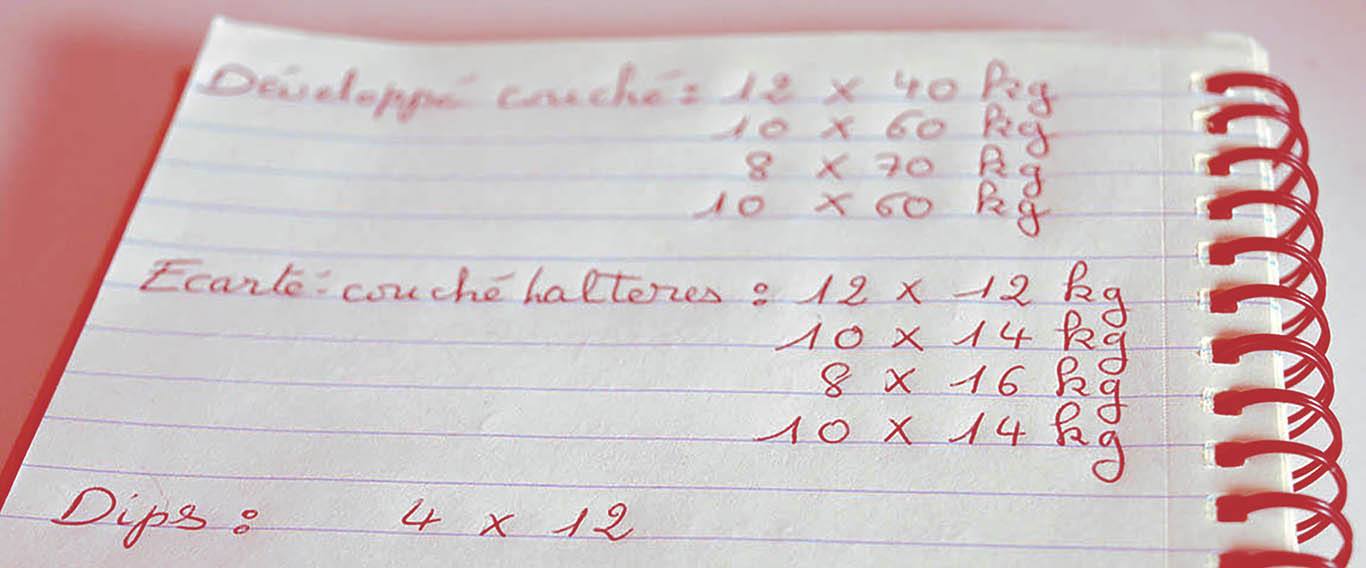 Développé couché : 12 x 40 kg
10 x 60 kg
8 x 70 kg
10 x 60 kg
Ecarté couché halteres : 12 x 12 kg
10 x 14 kg
8 x 16 kg
10 x 14 kg
Dips : 4 x 12